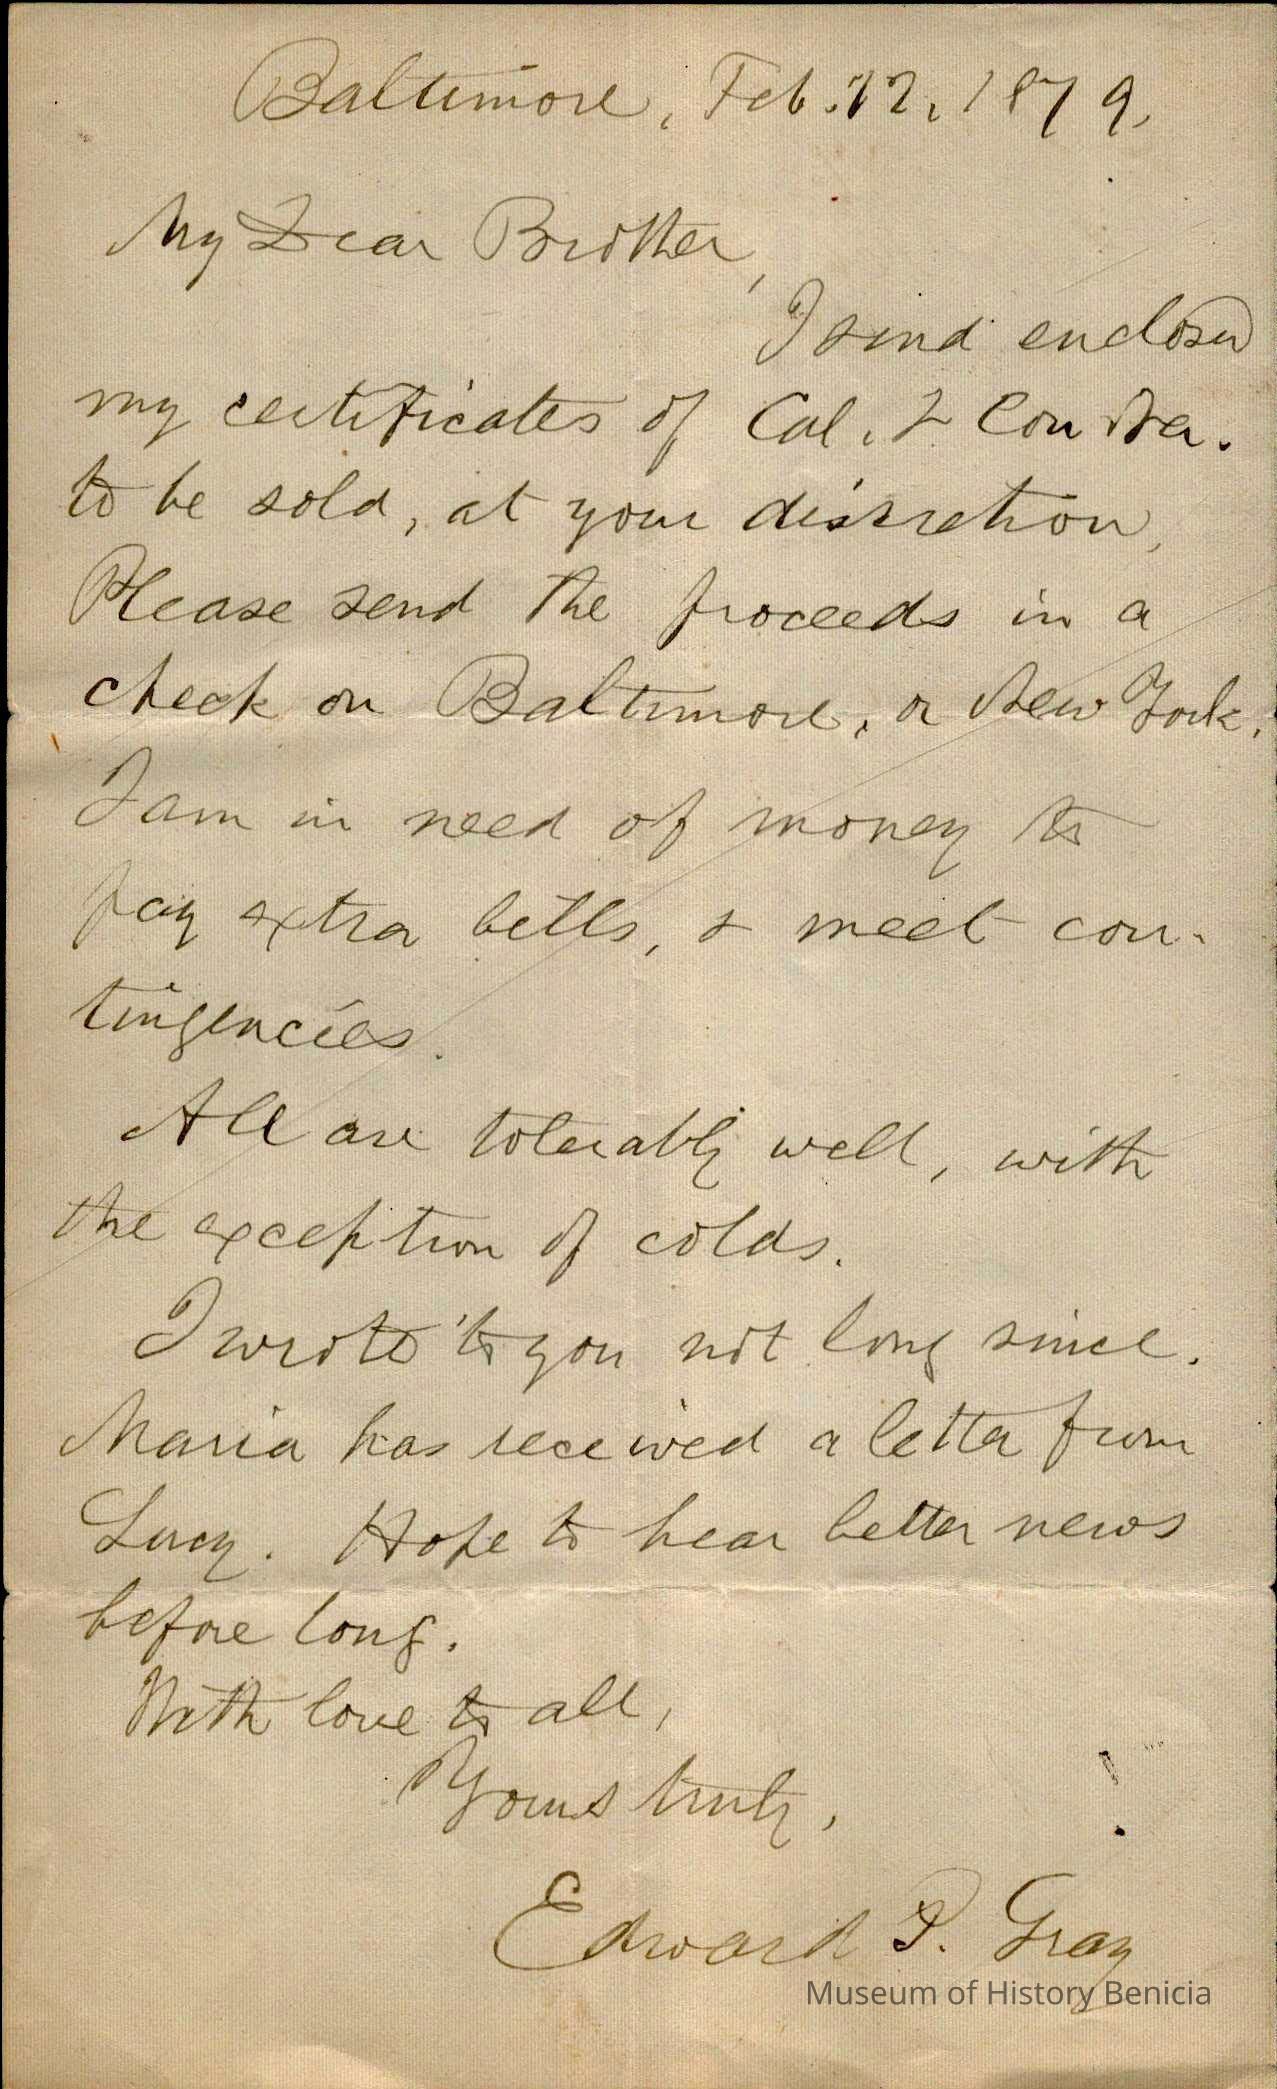 Baltimore, Feb. 12, 1879.
My Dear Brother,
I send enclosed
my certificates of Cal. & Con
to be sold, at your discretion,
Please send the proceeds in a
check on Baltimore, or New York.
I am in need of money to
pay extra bills, & meet con-
tingencies.
All are tolerably well, with
the exception of colds.
I wrote to you not long since.
Maria has received a letter from
Lucy. Hope to hear better news
before long.
With love to all,
Yours truly,
Edward P. Gray
Museum of History Benicia